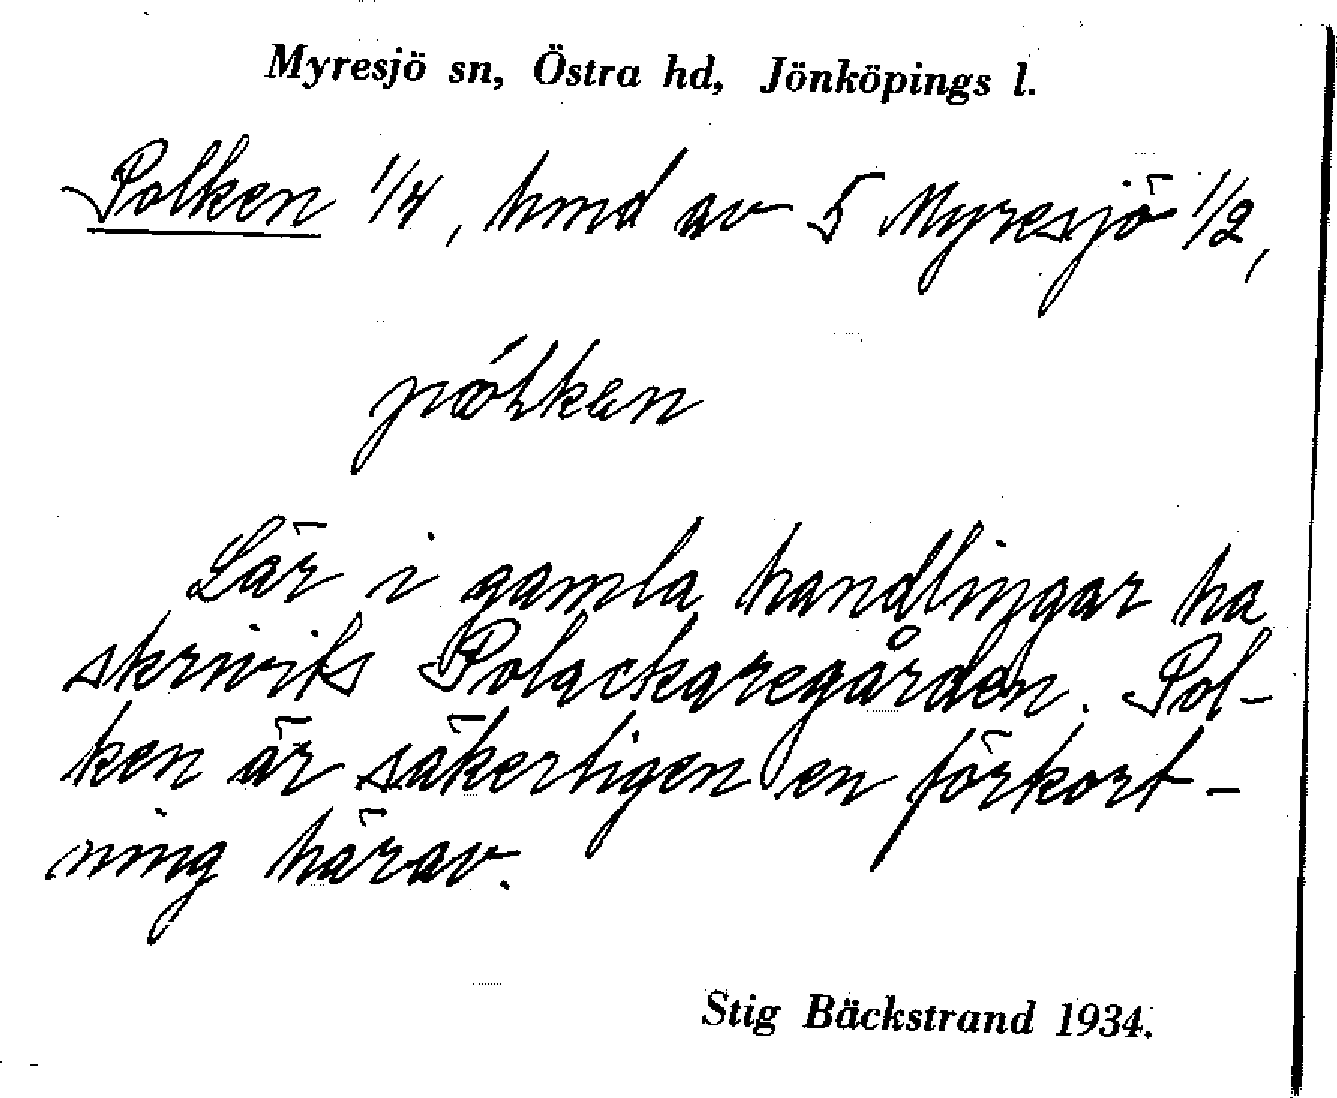 Myresjö sn, Östra hd, Jönköpings l.
Polken 1/4, hmd av 5 Myresjö 1/2,
Lär i gamla handlingar ha
skrivits Polackaregården. Pol-
ken är säkerligen en förkort-
ning härav.
Stig Bäckstrand 1934.